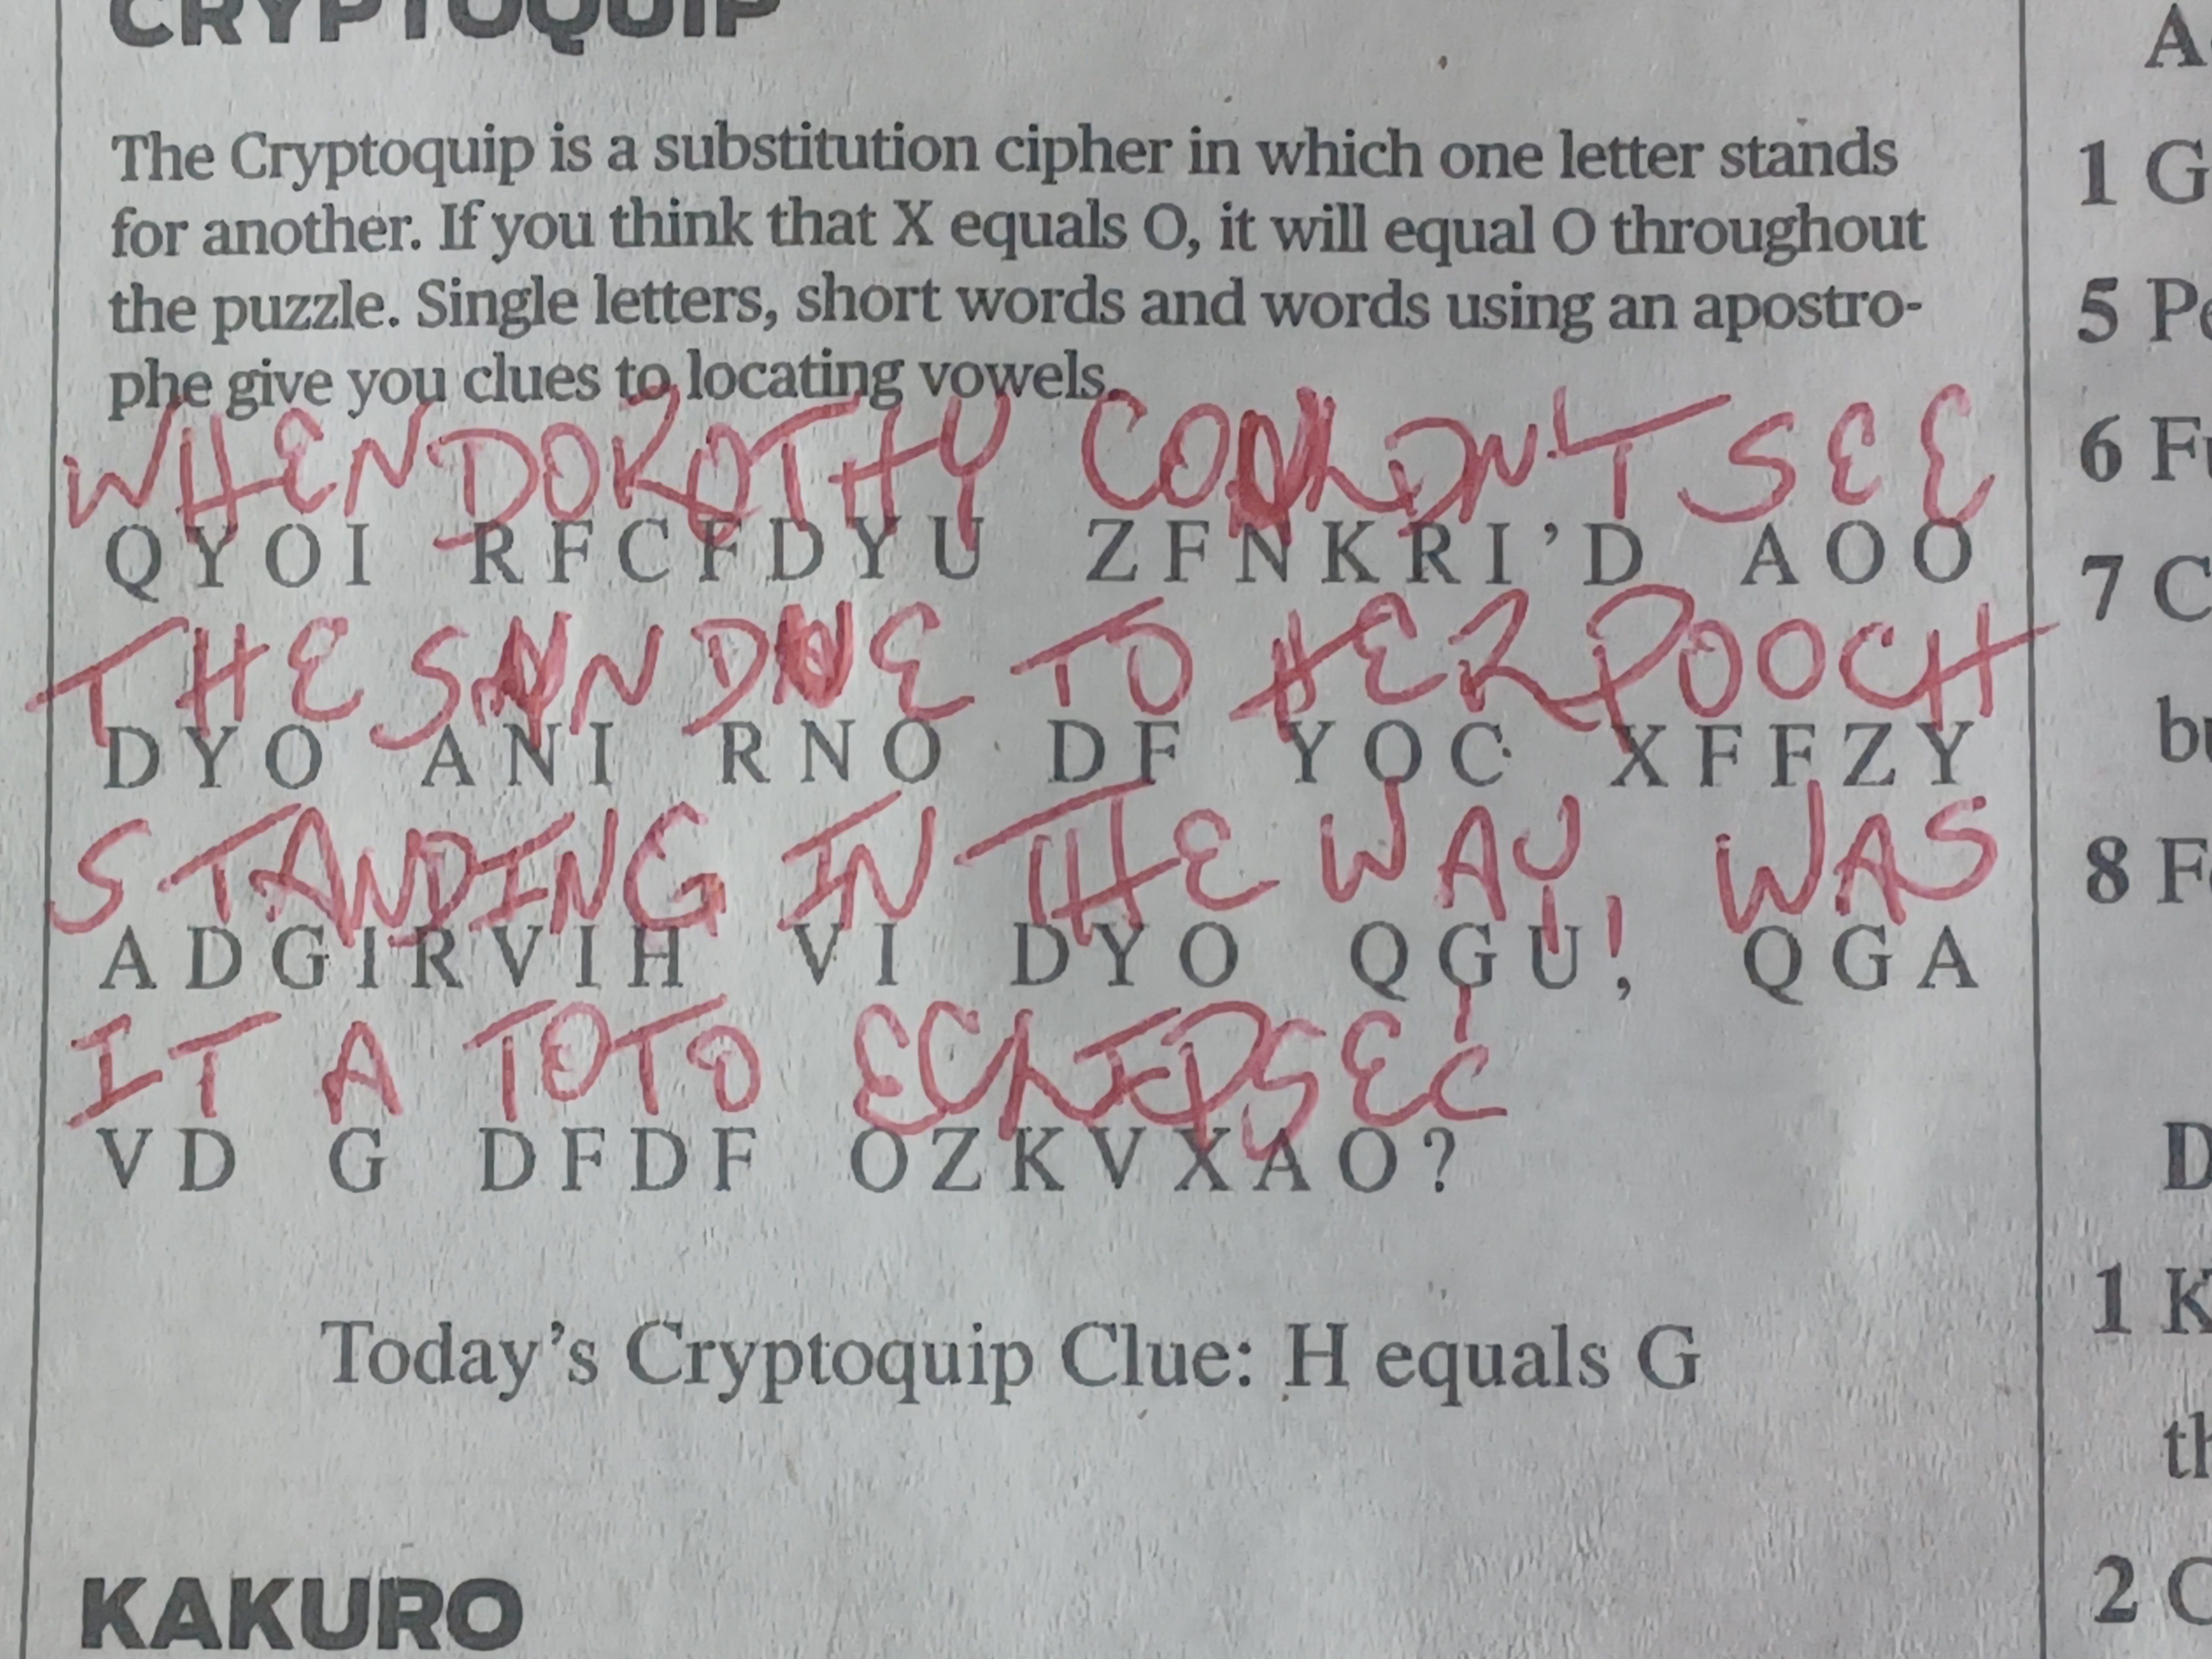 CRYPTOQUIP
The Cryptoquip is a substitution cipher in which one letter stands
for another. If you think that X equals O, it will equal O throughout
the puzzle. Single letters, short words and words using an apostro-
phe give you clues to locating vowels.
WHEN DOROTHY COULDN'T SEE
QYOI RFCFDYU ZFNKRI'D AOO
THE SUN DUE TO HER POOCH
DYO ANI RNO DF YOC XFFZY
STANDING IN THE WAY! WAS
ADGIRVIH VI DYO QGU, QGA
IT A TOTO ECLIPSE?
VD G DFDF OZKVXAO?
Today's Cryptoquip Clue: H equals G
KAKURO
1 G
5
6
7 C
8
D
1 K
2 C